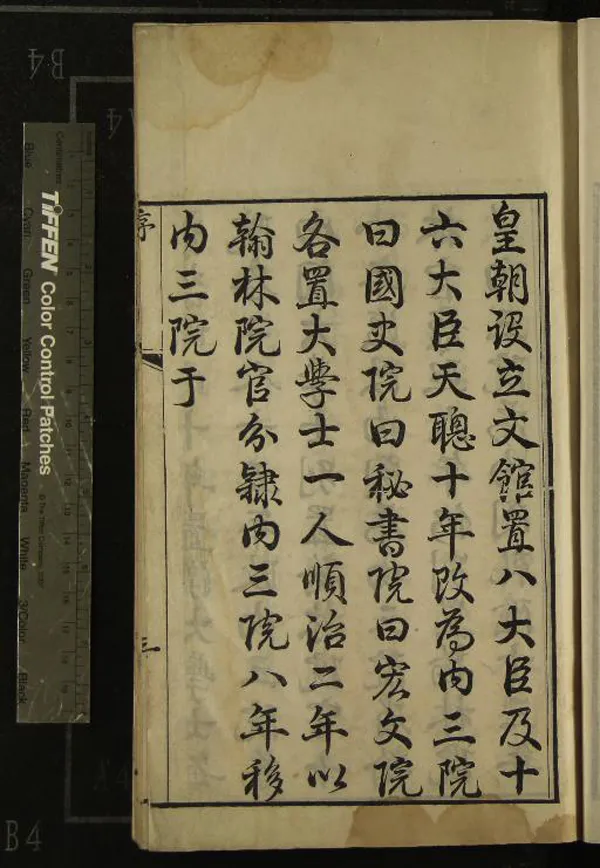 皇朝設立文館置八大臣及十
六大臣天聰十年改為内三院
曰國史院曰秘書院曰宏文院
各置大學士一人順治二年以
翰林院官分隸内三院八年移
内三院于
序
三
B4
B4
TIFFEN Color Control Patches
© The Tiffen Company, 2007
Centimetres
Blue
Cyan
Green
Yellow
Red
Magenta
White
3/Color
Black